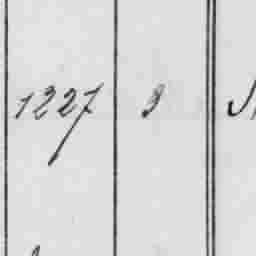 1227 3